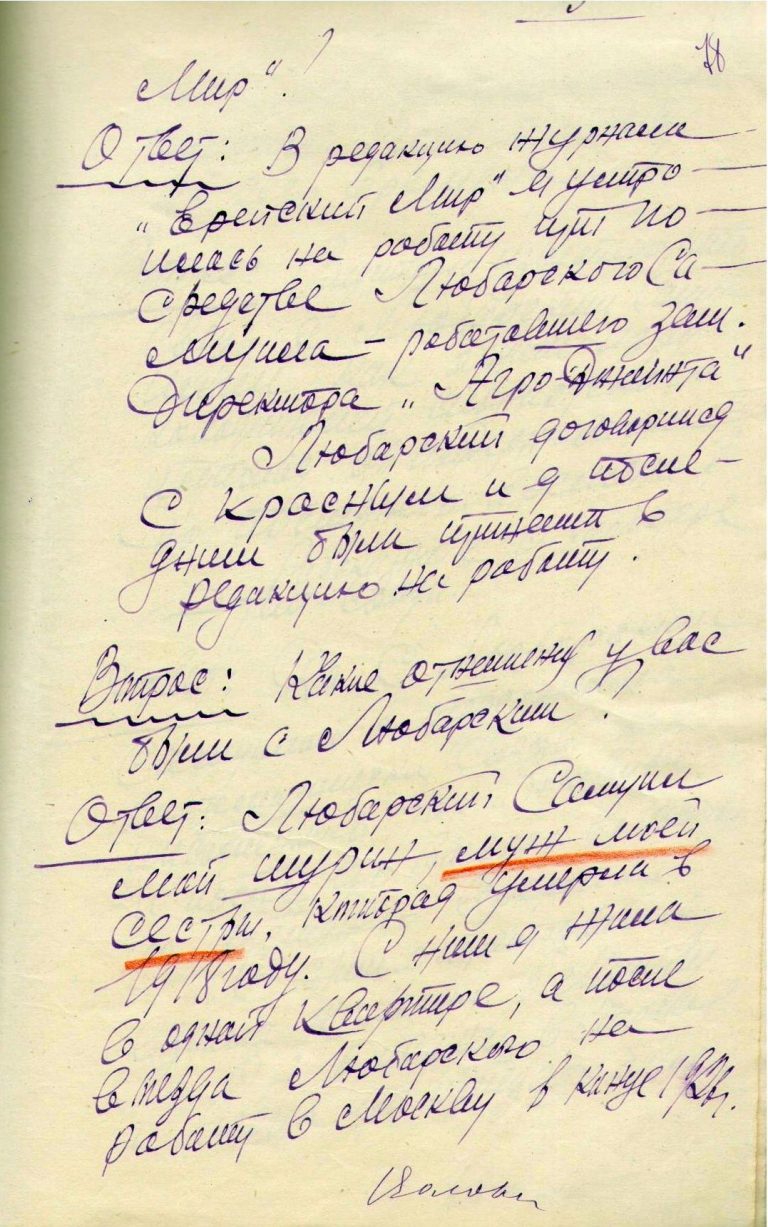 78
Мир"?
Ответ: В редакцию журнала
"Еврейский Мир" я устро-
илась на работу при по-
средстве Любарского Са-
муила - работавшего зам.
Директора "Агро-Джойнта"
Любарский договорился
с Красным и я после-
дним была принята в
редакцию на работу.
Вопрос: Какие отношения у вас
были с Любарским?
Ответ: Любарский Самуил
мой шурин, муж моей
сестры, которая умерла в
1918 году. С ним я жила
в одной квартире, а после
въезда Любарского на
работу в Москву в конце